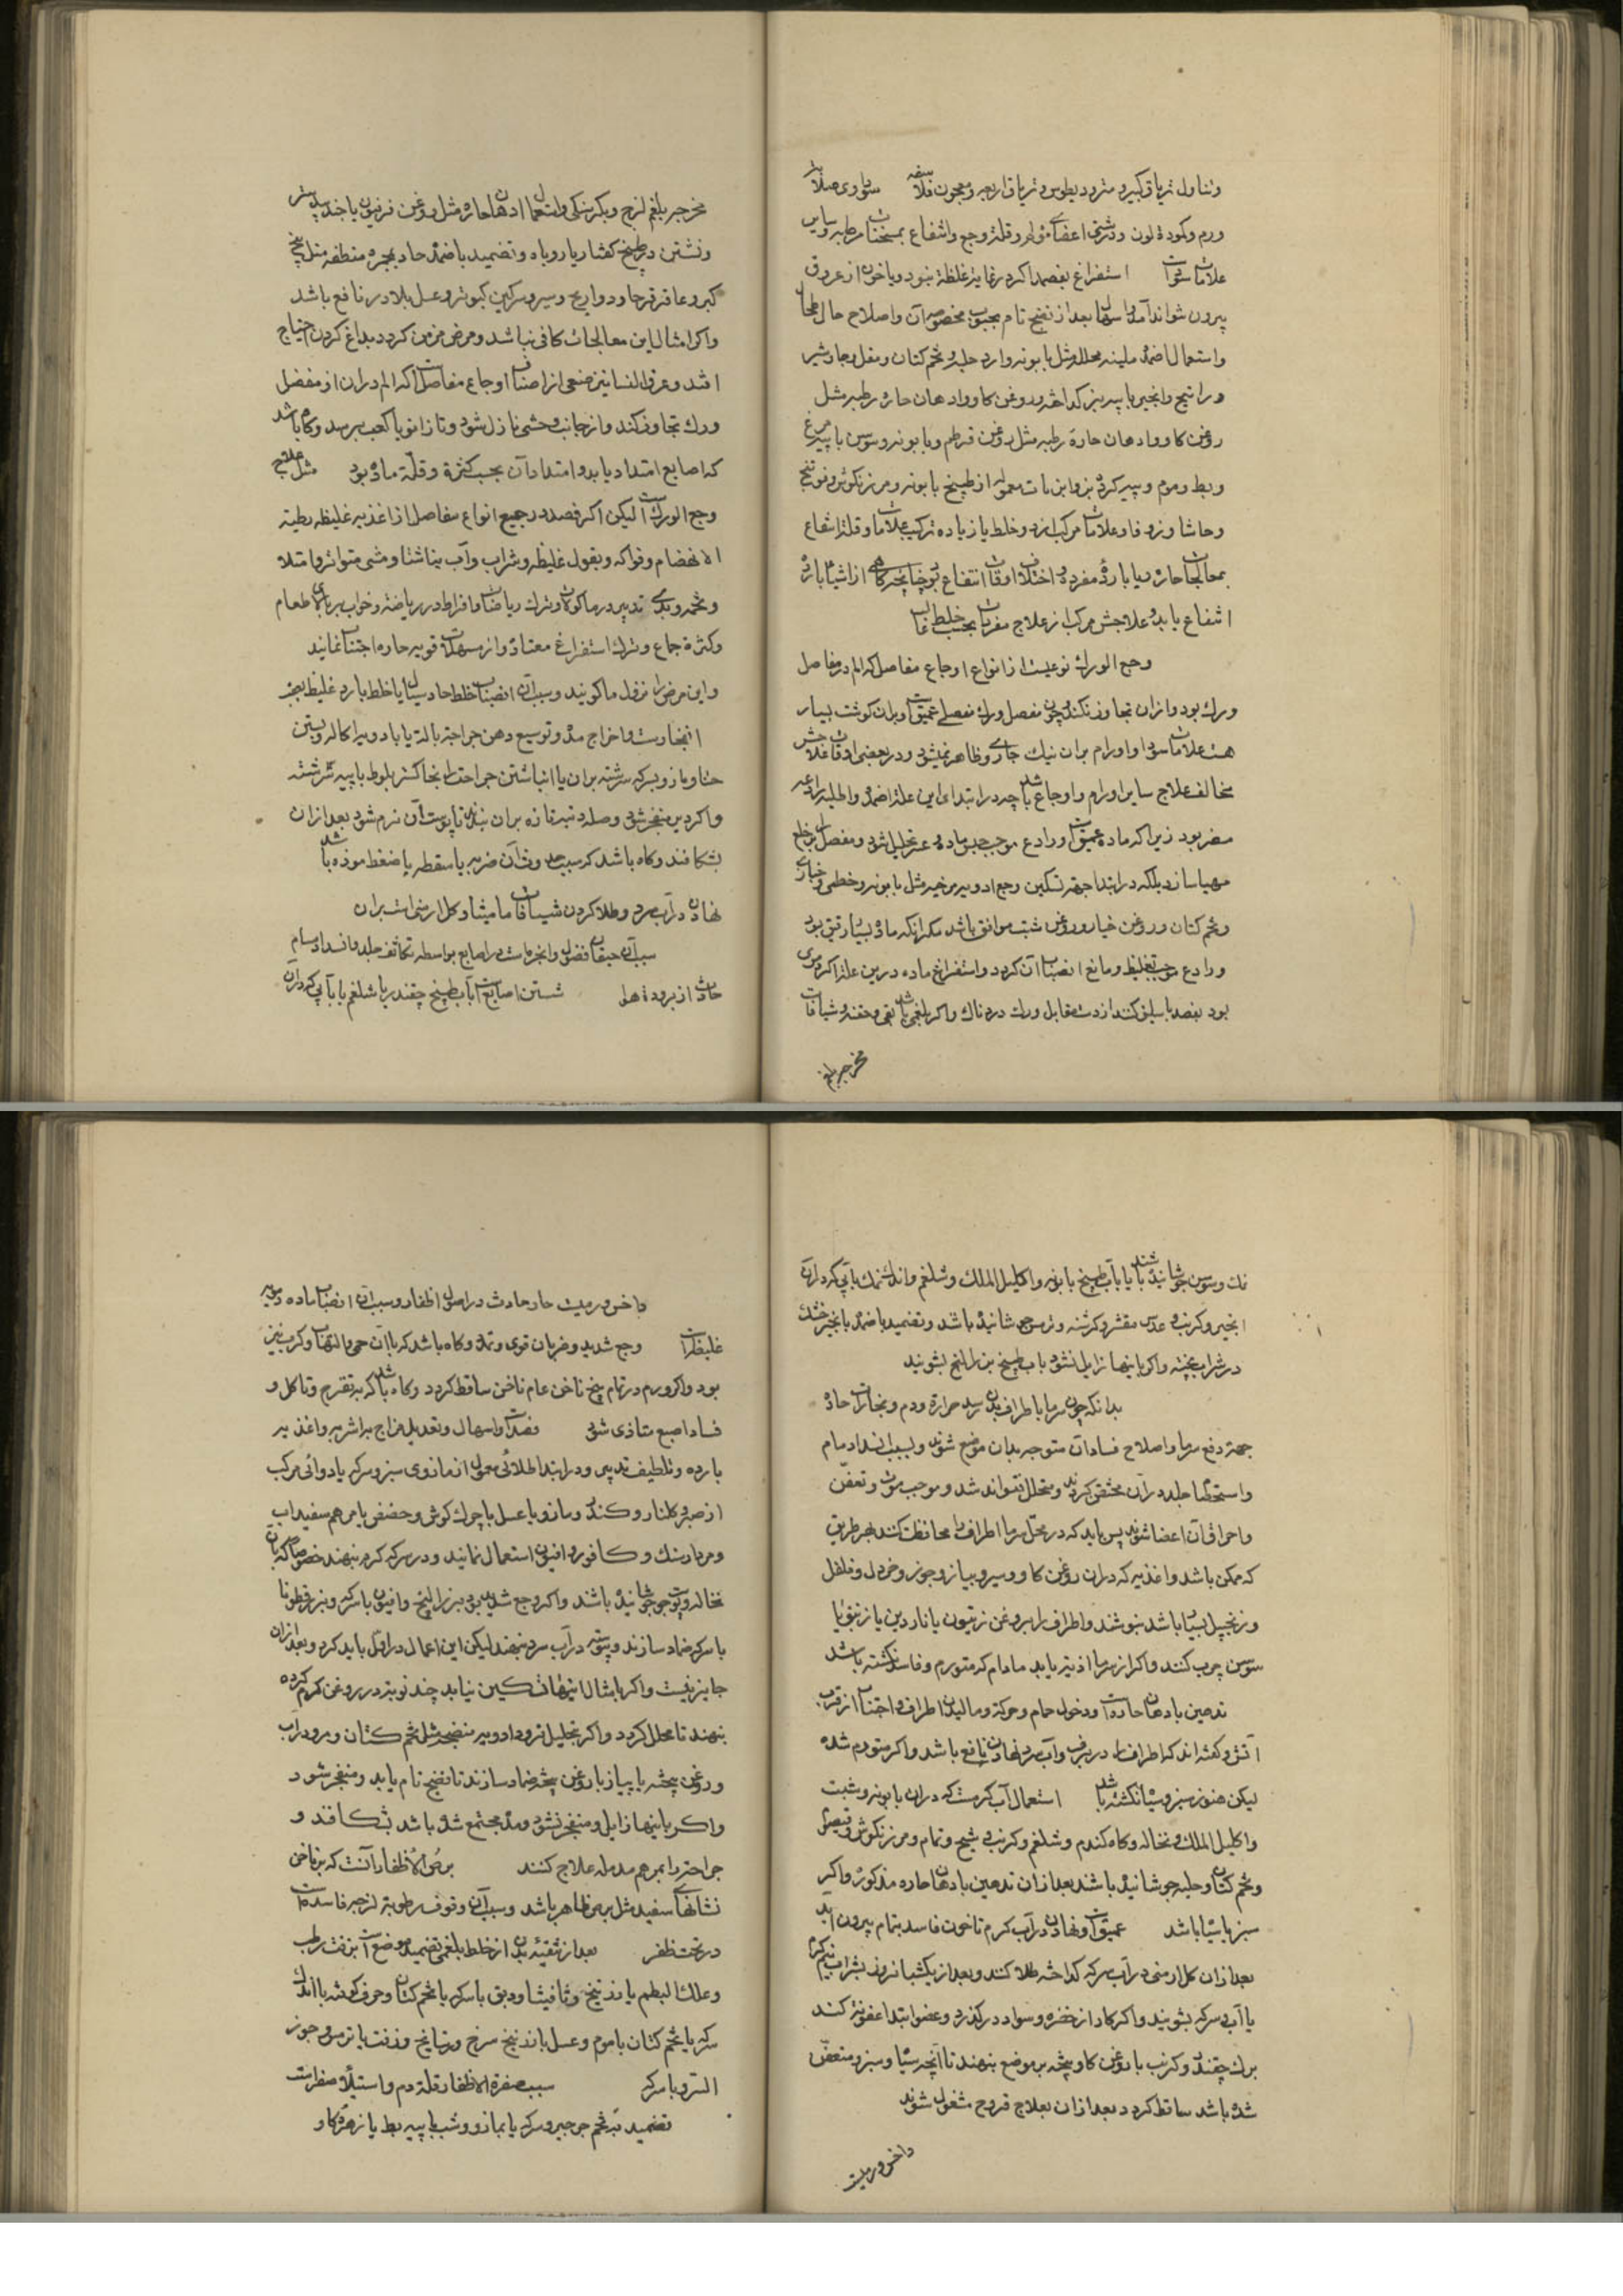 وتناول تریاق کبیر و مثرودیطوس و تریاق اربعه و معجون فلاسفه سوداوی صلابت
ورم و کمودة لون و درشتی اعضای مؤلم و قلة وجع و انتفاع بمسخنات مرطبه و سایر
علامات سودا است استفراغ بفصد اکر در غایة غلظة نبود و یا خون از عروق
بیرون تواند آمد و اسهال بعد از نضج تام بحبوب مخصوصه آن و اصلاح حال طحال
و استعمال اضمدهٔ ملینه محلله مثل بابونه و ارد حلبه و تخم کتان و مقل و جاوشیر
و راتینج و انجیر با پیه بز کداخته و روغن کاو و ادهان حاره رطبه مثل
روغن کاو و ادهان حارة رطبه مثل روغن قرطم و بابونه و سوسن با پیه مرغ
و بط و موم و پیه کردهٔ بز و ابزنات معموله از طبیخ بابونه و مرزنکوش و فوتنج
و حاشا و زوفا و علامات مرکب از دو خلط یا زیاده ترکیب علامات و قلة انتفاع
بمعالجات حاره و یا باردهٔ مفرده و اختلاف اوقات انتفاع بود چنانچه کاهی از اشیاء بارده
انتفاع یابد و علاجش مرکب از علاج مفردات بحسب خلط غالب
وجع الورک نوعیست از انواع اوجاع مفاصل که الم در مفاصل
ورک بود و از آن تجاوز نکند و چون مفصل ورک مفصلی عمیق است و بر آن کوشت بسیار
هست علامات سوا و اورام بران نیک جاری و ظاهر نمیشود و در بعضی اوقات علاجش
مخالف علاج سایر اورام و اوجاع باشد چه در ابتدای این علة اضمده و اطلیه رادعه
مضر بود زیرا که ماده عمیق است و رادع موجب حبس ماده و عسر تحلیل شود و مفصل برای خلع
مهیا سازد بلکه در ابتدا جهة تسکین وجع ادویه مرخیه مثل بابونه و خطمی و خبازی
و تخم کتان و روغن خیار و روغن شبت موافق باشد مکر انکه ماده بسیار رقیق بود
و رادع موجب تغلیظ و مانع انصباب آن کردد و استفراغ ماده درین علة اکر دموی
بود بفصد باسلیق کنند از دست مقابل ورک دردناک و اکر بلغمی باشد بقی و حقنه و شیافات
مخرجه بلغم
مخرجه بلغم لزج و بکرسنکی و استعمال ادهان حاره مثل روغن فرفیون با جندبیدستر
و نشستن در طبیخ کفتار یا روباه و تضمید باضمدهٔ حاد محمره منطفه مثل بیخ
کبر و عاقرقرحا و دواریح و سیر و سرکین کبوتر و عسل بلادر نافع باشد
و اکر امثال این معالجات کافی نباشد و مرض مزمن کردد بداغ کردن احتیاج
افتد و عرق النسا نیز صنفی از اصناف اوجاع مفاصل است که الم دران از مفصل
ورک تجاوز کند و از جانب وحشی نازل شود و تا زانو یا کعب برسد و کاه باشد
که اصابع امتداد یابد و امتداد آن بحسب کثرة و قلّة ماده بود مثل علاج
وجع الورک است لیکن اکر فصد در جمیع انواع مفاصل از اغذیه غلیظه بطیئه
الانهضام و فواکه و بقول غلیظه و شراب و آب بناشتا و مشی متواتر و امتلا
و تخمه و بدی تدبیر در ماکولات و ترک ریاضات و افراط در ریاضة و خواب بر بالای طعام
و کثرة جماع و ترک استفراغ معتاده و از مسهلات قویه حاره اجتناب نمایند
و این مرض را نزول ما کویند و سبب آن انصباب خلط حاد سیال یا خلط بارد غلیظ
انفجارست و اخراج مده و توسیع دهن جراحة بالة یا بادویه اکاله و بستن
حنا و مازو بسرکه سرشته بران یا انباشتن جراحة بخاکستر بلوط با پیه سرشته
و اکر دیر منفجر شود وصله دنبه تازه بران بندند تا پوست آن نرم شود بعد ازان
بشکافند و کاه باشد که سبب حدوث آن ضربه یا سقطه یا ضغط موزه باشد
نهادن در آب سرد و طلا کردن شیاف مامیثا و کل ارمنی است بران
سبب آن احتقان فضول و ابخره است در اصابع بواسطه تکاثف جلد و انسداد مسام
حادث از برودة هوا شستن اصابع است بآب طبیخ چقندر یا شلغم یا بآبی که دران
نک و سوس جوشانیده باشند یا بآب طبیخ بابونه و اکلیل الملک و شلغم و اندک نمک یا بآبی که دران
انجیر و کرنب و عدس مقشر و کرسنه و ترمس جوشانیده باشند و تضمید باضمدهٔ یا انجیر خشک
در شراب پخته و اکر باینها زایل نشود بآب طبیخ بزرالبنج بشویند
بدانکه چون سرما باطراف بدن رسد حرارة و دم و بخارات حاده
جهة دفع سرما و اصلاح فساد آن متوجه بدان موضع شوند و بسبب انسداد مسام
و استحصاف جلد دران محتقن کردند و متحلل نتواند شد و موجب موت و تعفّن
و احراق آن اعضا شوند پس باید که در محل سرما اطراف را محافظت کنند بهر طریق
که ممکن باشد و اغذیه که دران روغن کاو و سیر و پیاز و جوز و خردل و فلفل
و زنجبیل بسیار باشد بنوشند و اطراف را بروغن زیتون یا ناردین یا زنبق یا
سوسن چرب کنند و اکر از سرما اذیته یابد مادام که متورم و فاسد نکشته باشد
تدهین بادهان حاده است و دخول حمام و حرکة و مالیدن اطراف و اجتناب از قرب
آتش و کفته اند که اطراف را در برف و آب سرد نهادن نافع باشد و اکر متورم شده
لیکن هنوز سبز و سیاه نکشته باشد استعمال آب کرمست که دران بابونه و شبت
و اکلیل الملک و نخاله و کاه کندم و شلغم و کرنب و شیح و نمام و مرزنکوش و قیصوم
و تخم کتان و حلبه جوشانیده باشند بعد ازان تدهین بادهان حاره مذکوره و اکر
سبز یا سیاه باشد عمیق است و نهادن در آب کرم تا خون فاسد بتمام بیرون آید
بعد ازان کل ارمنی در آب سرکه کداخته طلا کنند و بعد از یکشبانروز بشراب نیمکرم
یا آب و سرکه بشویند و اکر کار از خضره و سواد درکذرد و عضو ابتدا عفونة کند
برک چقندر و کرنب با روغن کاو پخته بر موضع بنهند تا انچه سیاه و سبز و متعفّن
شده باشد ساقط کردد بعد ازان بعلاج قروح مشغول شوند
داخس ورمیست
داخس ورمیست حار حادث در اصول اظفار و سبب آن انصباب ماده دمویه
غلیظه است وجع شدید و ضربان قوی و تمدد و کاه باشد که با آن حمی و التهاب و کرب نیز
بود و اکر ورم در تمام بیخ ناخن عام ناخن ساقط کردد و کاه باشد که بتقرح و تاکل و
فساد اصبع متاذی شود فصد است و اسهال و تعدیل مزاج باشربه و اغذیه
بارده و تلطیف تدبیر و در ابتدا طلائی معمول از مازوی سبز و سرکه یا دوائی مرکب
از صبر و کلنار و کندر و مازو با عسل یا چرک کوش و حضض یا مرهم سفیداب
و مردارسنک و کافور و افیون استعمال نمایند و در سرکه کرم بنهند خصوصا که بان
نخاله و پوست جوشانیده باشند و اکر وجع شدید بود بزرالبنج و افیون با سرکه و بزرقطونا
با سرکه ضماد سازند و پیوسته در آب سرد بنهند لیکن این اعمال در اول باید کرد و بعد ازان
جایز نیست و اکر بامثال اینها تسکین نیابد چند نوبة در روغن کرم کرده
بنهند تا محلل کردد و اکر بتحلیل نرود ادویه منضجه مثل تخم کتان و مرو در آب
و روغن پخته یا پیاز با روغن پخته ضماد سازند تا نضج تام یابد و منفجر شود
و اکر باینها زایل و منفجر نشود و مده مجتمع شده باشد بشکافند و
جراحة را بمرهم مدمله علاج کنند برص الاظفار آنست که بر ناخن
نشانهای سفید مثل برص ظاهر باشد و سبب آن وقوف رطوبة لزجه فاسده است
در تحت ظفر بعد از تنقیه بدن از خلط بلغمی تضمید موضع است بزفت رطب
و علک البطم یا زرنیخ و ثافیثا و دبق با سرکه یا تخم کتان و حرف کوفته با اندک
سرکه یا تخم کتان با موم و عسل یا زرنیخ سرخ و ریتیانج و زفت یا ترمس و جوز
السرو با سرکه سبب صفرة الاظفار قلة دم و استیلاء صفراست
تضمید بتخم جرجیر و سرکه یا بمازو و شب یا پیه بط یا زهرهٔ کاو